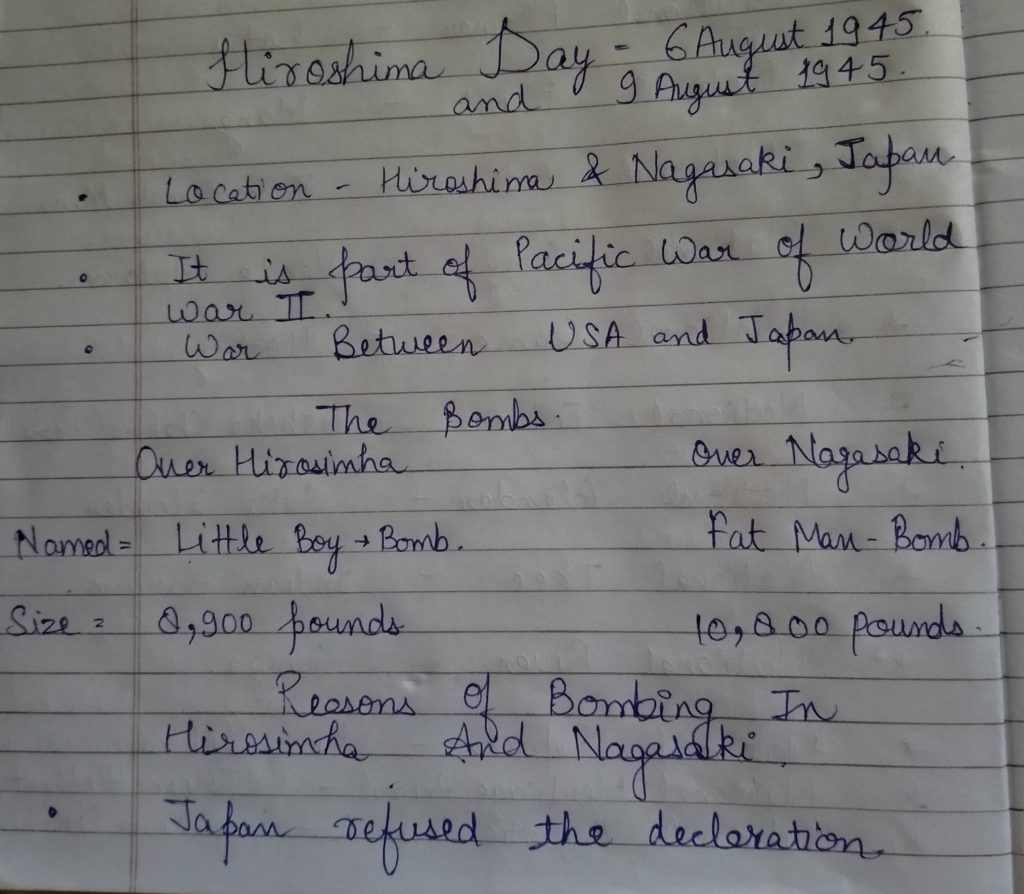 Hiroshima Day - 6 August 1945.
and 9 August 1945.
• Location - Hiroshima & Nagasaki, Japan
• It is part of Pacific War of World
War II.
• War Between USA and Japan
The Bombs.
Over Hirosimha Over Nagasaki.
Named = Little Boy → Bomb. Fat Man - Bomb.
Size = 8,900 pounds 10,800 pounds.
Reasons of Bombing In
Hirosimha And Nagasaki.
• Japan refused the decleration.